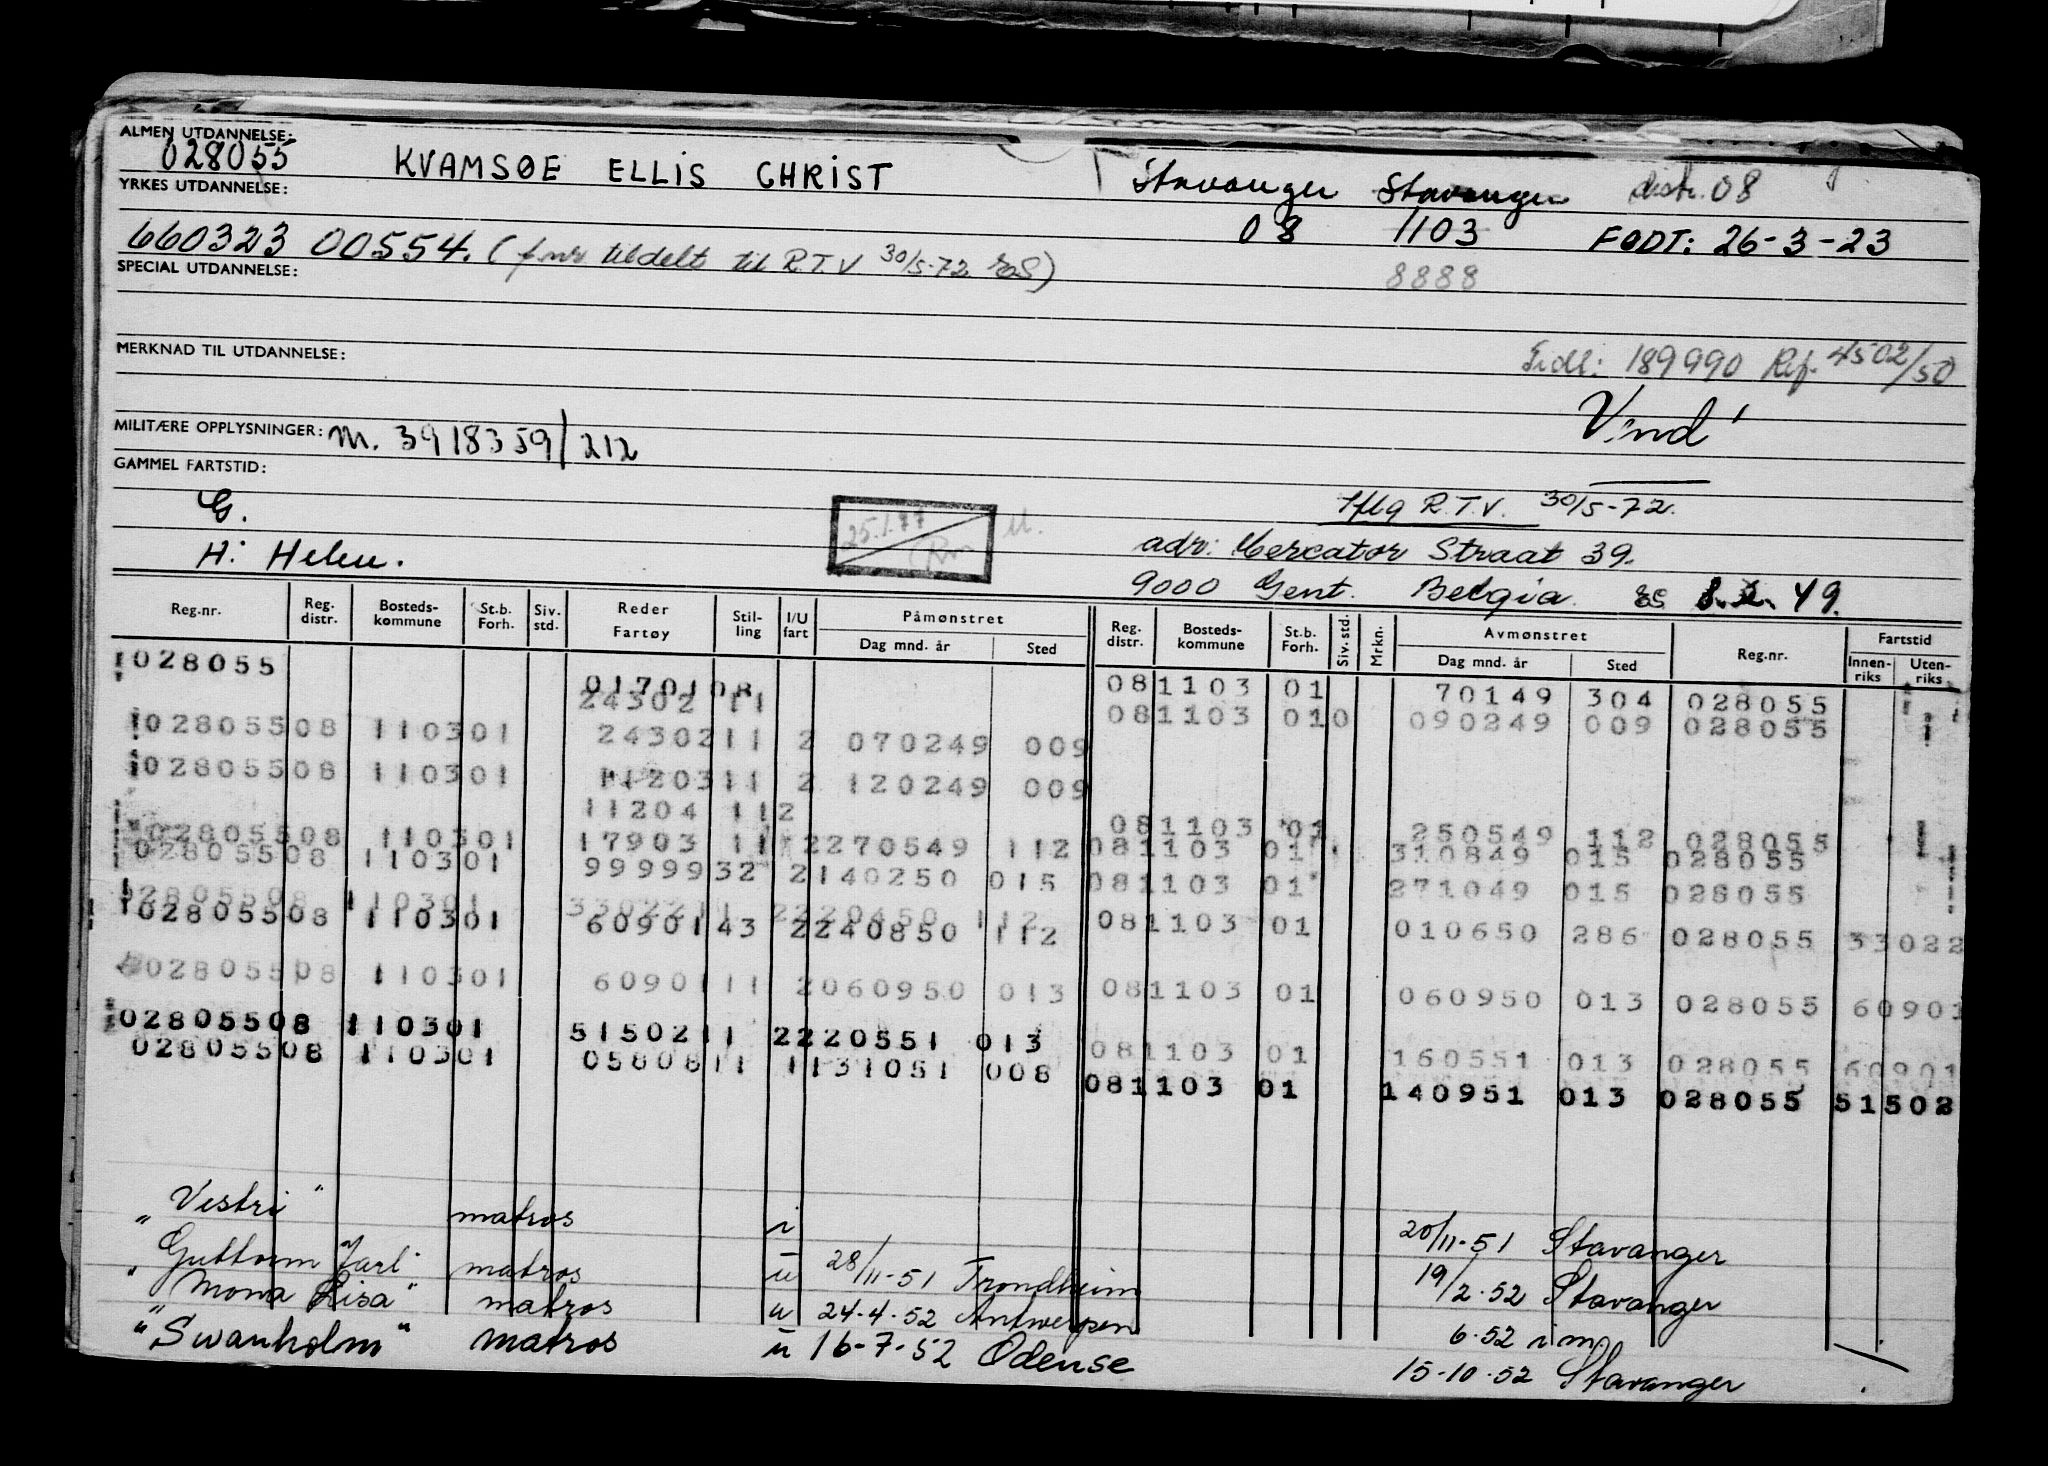 ALMEN UTDANNELSE:
028055 KVAMSØE ELLIS CHRIST Stavanger Stavanger distr. 08
YRKES UTDANNELSE:
08 1103 FØDT: 26-3-23
660323 00554. (fnr tildelt til R.T.V 30/5-72 )
SPECIAL UTDANNELSE: 8888
MERKNAD TIL UTDANNELSE:
189990 Ref. 4502/50
Vind
MILITÆRE OPPLYSNINGER: M. 3918359/212
GAMMEL FARTSTID:
G. R.T.V. 30/5-72.
25.1.77 M.
H: Helen. adr: Mercator Straat 39.
9000 Gent. Belgia. 49.
Reg.nr. Reg. distr. Bosteds-kommune St.b. Forh. Siv. std. Reder Fartøy Stil-ling I/U fart Påmønstret Dag mnd. år Sted Reg. distr. Bosteds-kommune St.b. Forh. Siv. std. Mrkn. Avmønstret Dag mnd. år Sted Reg.nr. Fartstid Innen-riks Uten-riks
028055 0170108 081103 01 70149 304 028055
24302 11 081103 010 090249 009 028055
02805508 110301 2430211 2 070249 009
02805508 110301 1120311 2 120249 009
11204 112 081103 01 250549 112 028055
02805508 110301 17903 11 2270549 112 081103 01 310849 015 028055
02805508 110301 9999932 2140250 015 081103 01 271049 015 028055
02805508 110301 3302211 2220450 112
02805508 110301 6090143 2240850 112 081103 01 010650 286 028055 33022
02805508 110301 6090111 2060950 013 081103 01 060950 013 028055 60901
02805508 110301 5150211 2220551 013 081103 01 160551 013 028055 60901
02805508 110301 0580811 1131051 008 081103 01 140951 013 028055 51502
"Vestri" matros i 20/11-51 Stavanger
"Guttorm Jarl" matros u 28/11-51 Trondheim 19/2-52 Stavanger
"Mona Lisa" matros u 24-4-52 Antwerpen 6-52 i m.
"Swanholm" matros u 16-7-52 Odense 15-10-52 Stavanger